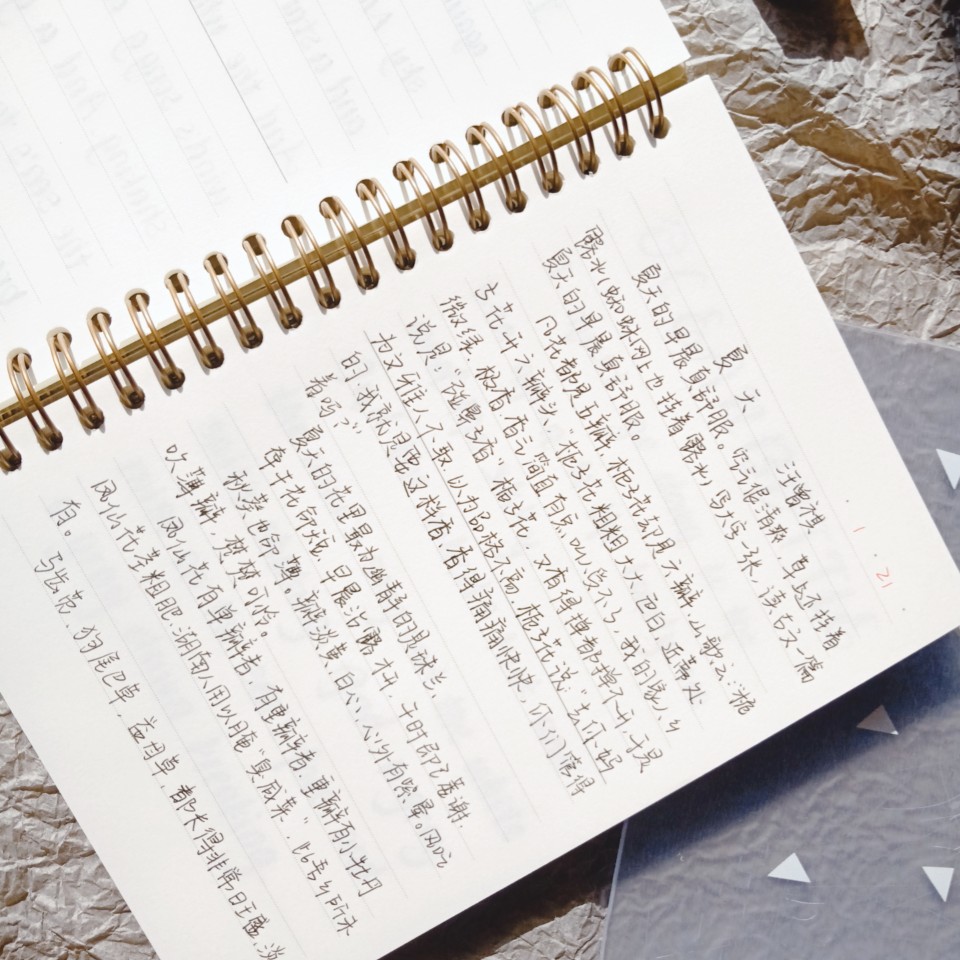 1.21
夏 天
汪曾祺
夏天的早晨真舒服。空气很清爽,草上还挂着
露水(蜘蛛网上也挂着露水),写大字一张,读古文一篇
夏天的早晨真舒服。
凡花都是五瓣,栀子花却是六瓣。山歌云:栀
子花开六瓣头。"栀子花粗粗大大,色白,近蒂处
微绿,极香,香气简直有点叫人受不了,我的家乡人
说是:"碰鼻子香"栀子花,又香得掸都掸不开,于是
为文雅人不取,以为品格不高。栀子花说:"去你妈
的,我就是要这样香,香得痛痛快快,你们管得
着吗?"
夏天的花里最为幽静的是珠兰。
牵牛花命短。早晨沾露才开,午时即已萎谢。
秋葵也命薄。瓣淡黄,白心,心外有紫晕。风吹
吹薄瓣,楚楚可怜。
凤仙花有单瓣者,有重瓣者。重瓣有小牡丹
凤仙花茎粗肥,湖南人用以腌"臭咸菜",此吾乡所未
有。
马齿苋、狗尾巴草、益母草,都长得非常旺盛。淡